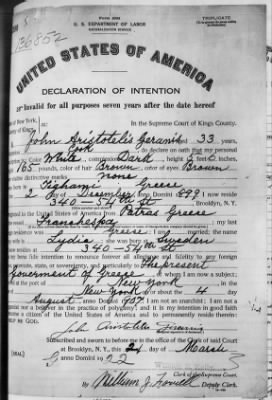 Form 2203
TRIPLICATE
U. S. DEPARTMENT OF LABOR
NATURALIZATION SERVICE
136852
UNITED STATES OF AMERICA
DECLARATION OF INTENTION
Invalid for all purposes seven years after the date hereof
of New York,
In the Supreme Court of Kings County.
of Kings
John Aristotelis Geranis 33 years,
Cook do declare on oath that my personal
Color White, complexion Dark, height 5 feet 2 inches,
165 pounds, color of hair Brown, color of eyes Brown
distinctive marks none
Greese
2 day of December, anno Domini 1889; I now reside
340-54th St, Brooklyn, N. Y.
to the United States of America from Patras Greese
; my last
residence was Greese; I am married;
Lydia; she was born in Sweden
resides at 340-54th St
bona fide intention to renounce forever all allegiance and fidelity to any foreign
state, or sovereignty, and particularly to The present
Government of Greese, of whom I am now a subject;
at the port of New York, in the
New York, on or about the 4 day
August, anno Domini 1907; I am not an anarchist; I am not a
nor a believer in the practice of polygamy; and it is my intention in good faith
become a citizen of the United States of America and to permanently reside therein:
HELP ME GOD.
John Aristotelis Geranis
Subscribed and sworn to before me in the office of the Clerk of said Court
at Brooklyn, N. Y., this 24 day of March
[SEAL] anno Domini 1922
Clerk of the Supreme Court.
By William J. Powell, Deputy Clerk.